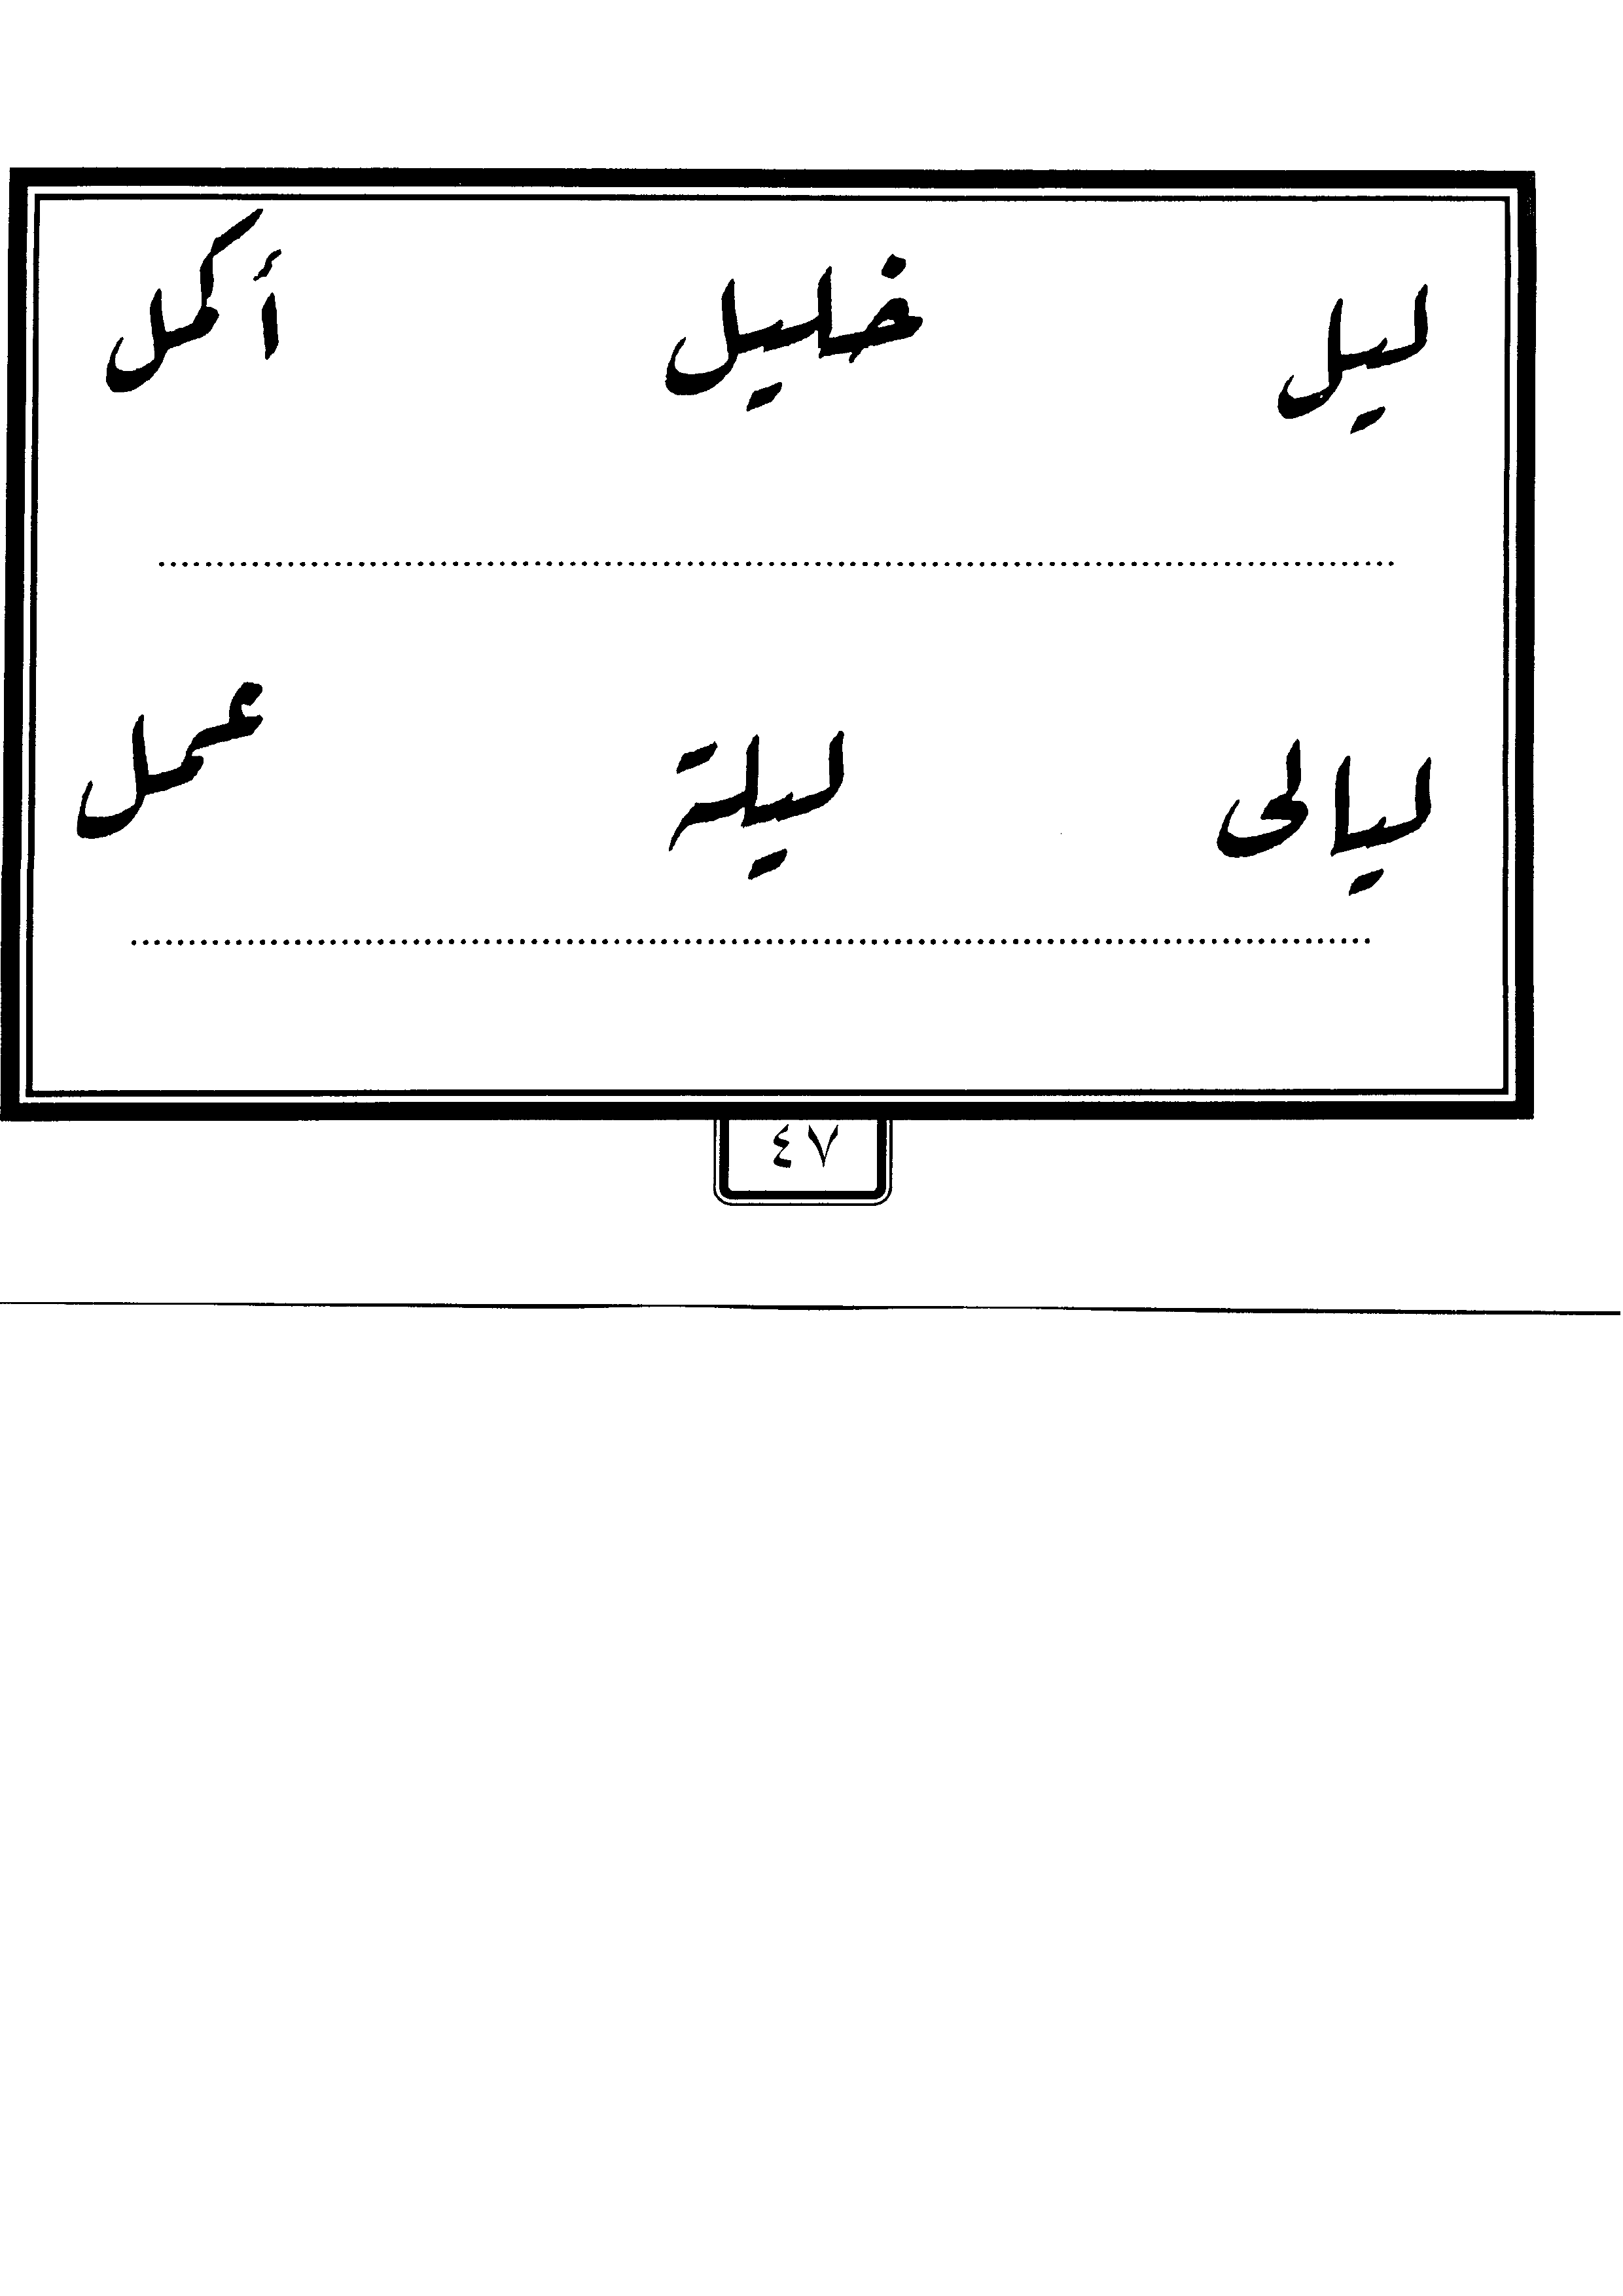 ليل خليل أكمل
ليالى ليلة عمل
٤٧